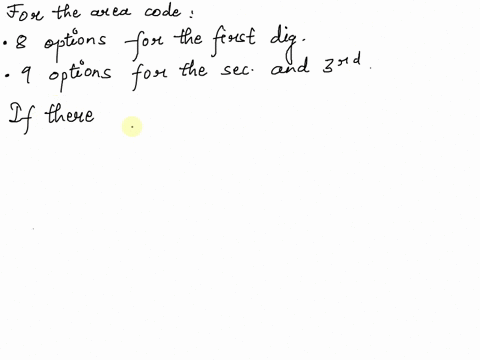 For the area code :
• 8 options for the first dig.
• 9 options for the sec. and 3rd.
If there